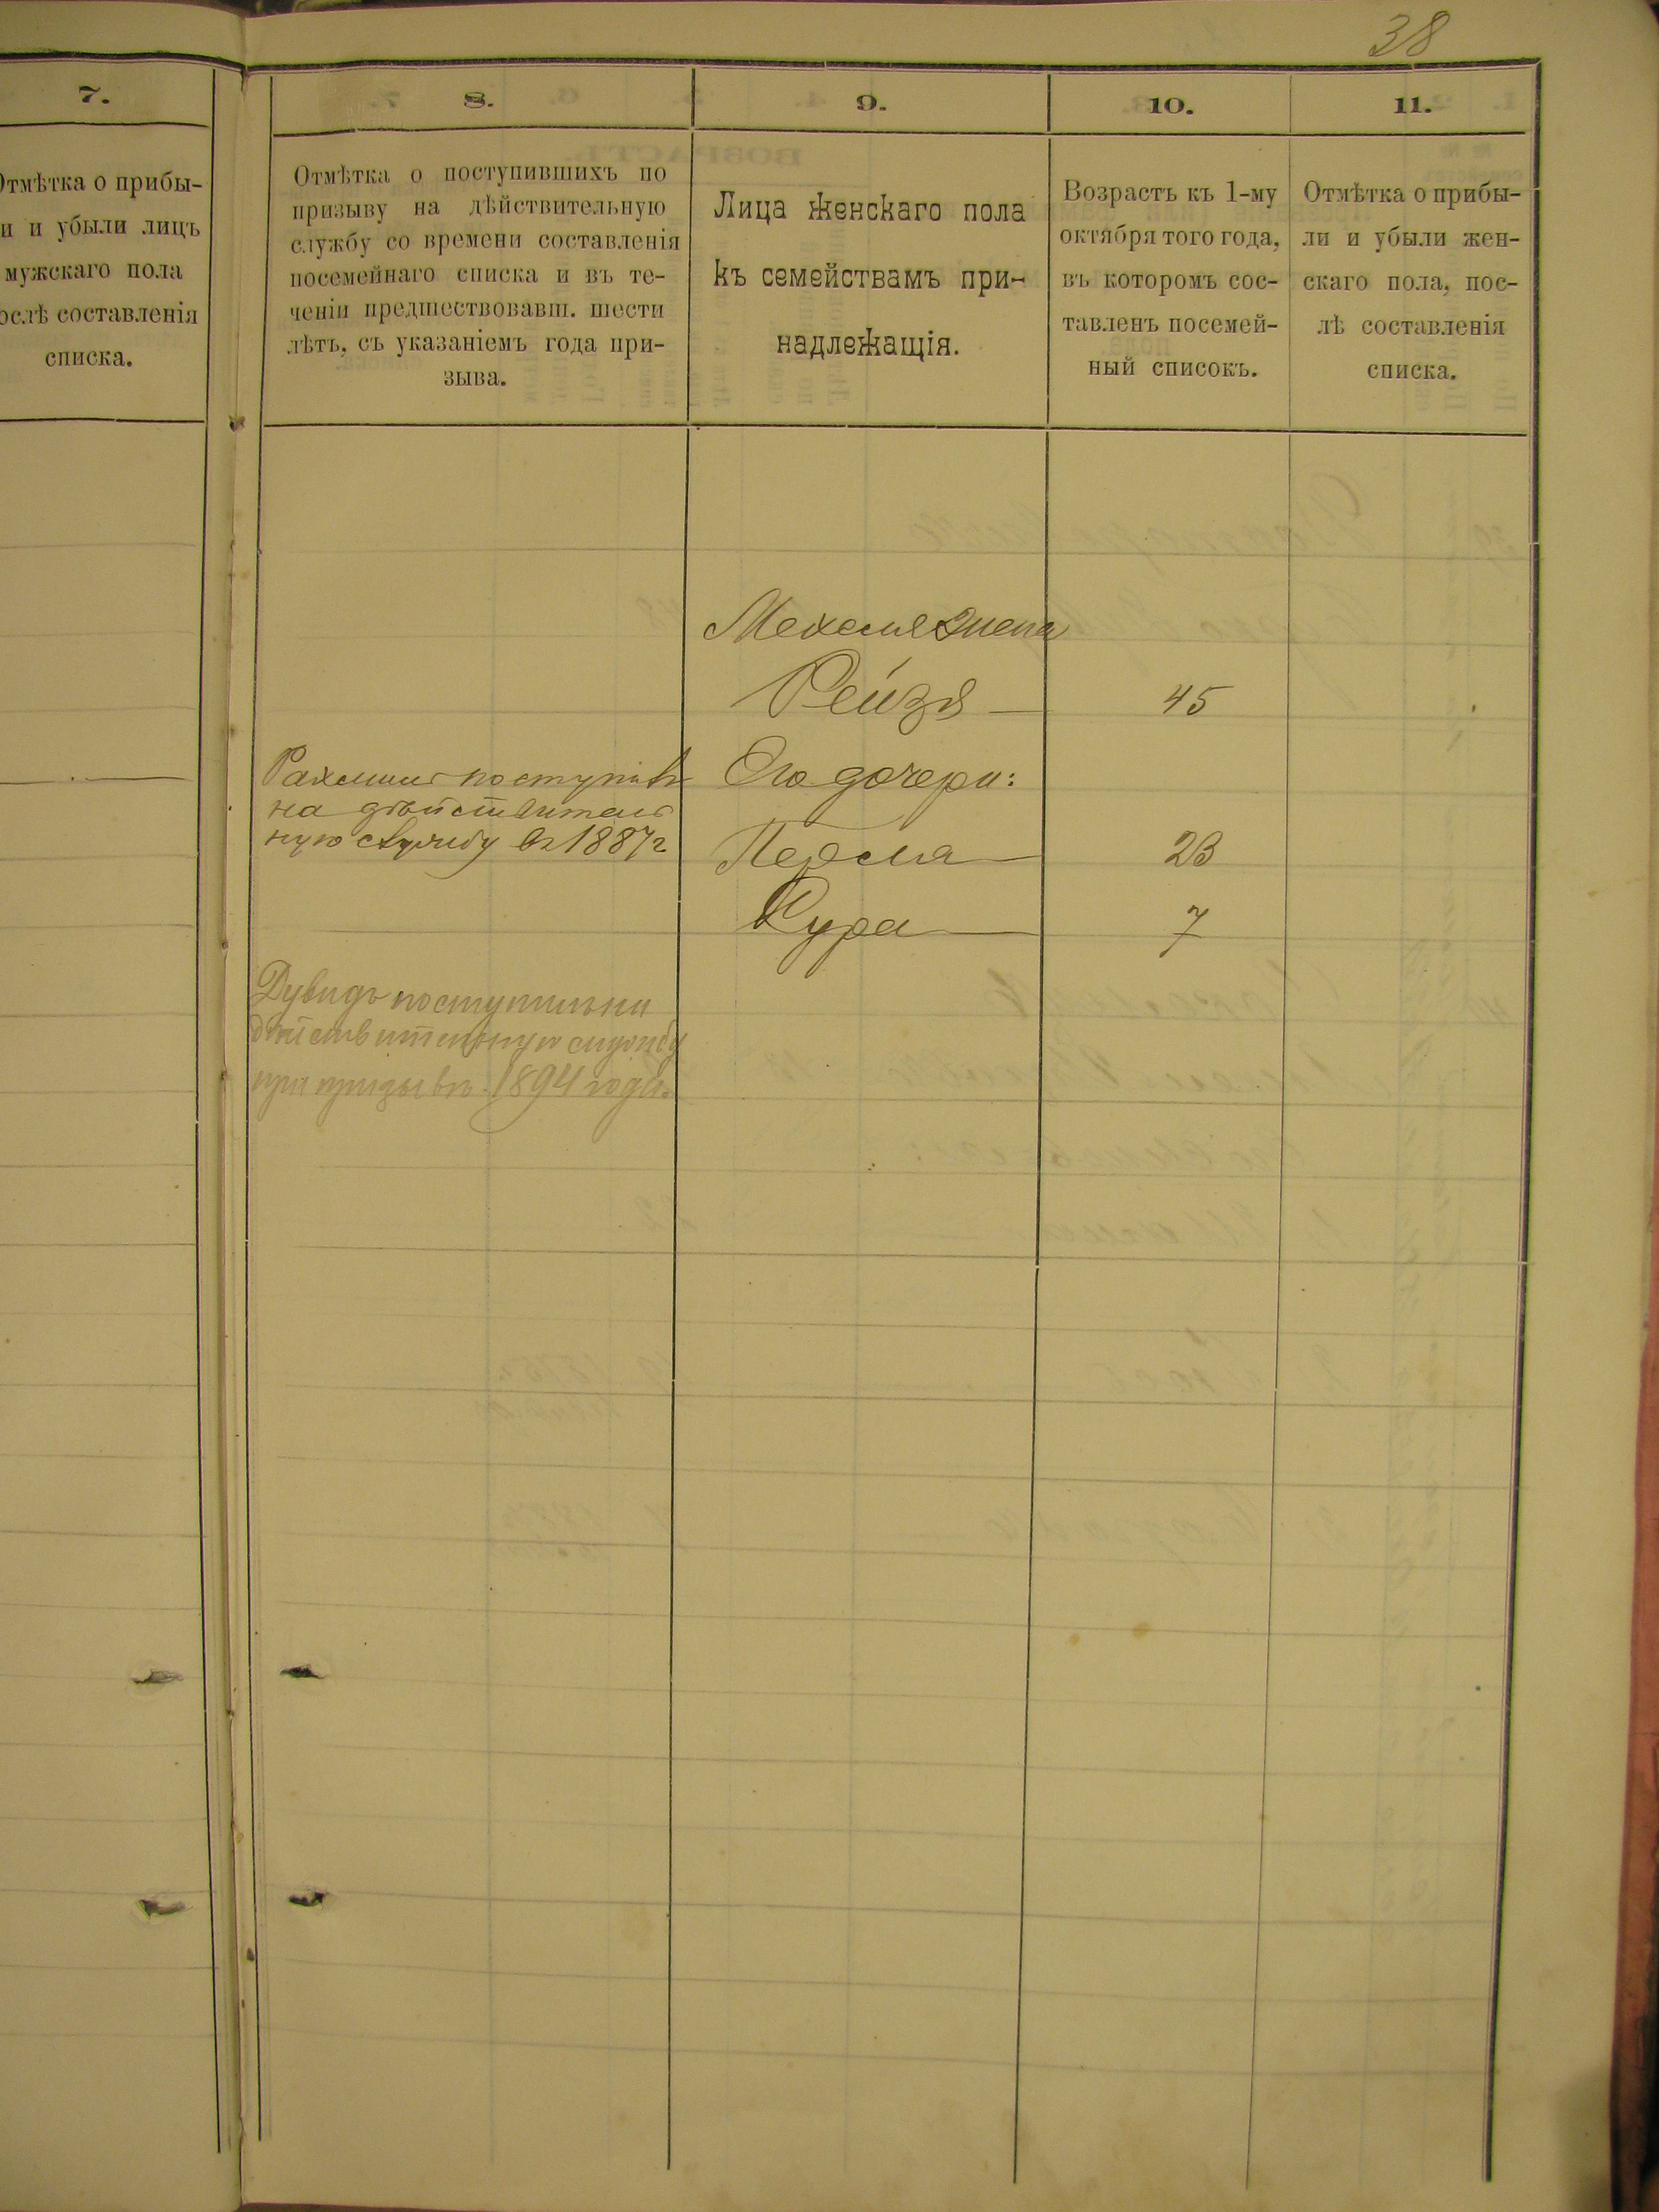 38
7.
Отмѣтка о прибы-
и и убыли лицъ
мужскаго пола
ослѣ составленія
списка.
8.
Отмѣтка о поступившихъ по
призыву на дѣйствительную
службу со времени составленія
посемейнаго списка и въ те-
ченіи предшествовавш. шести
лѣтъ, съ указаніемъ года при-
зыва.
9.
Лица женскаго пола
къ семействамъ при-
надлежащія.
10.
Возрастъ къ 1-му
октября того года,
въ которомъ сос-
тавленъ посемей-
ный списокъ.
11.
Отмѣтка о прибы-
ли и убыли жен-
скаго пола, пос-
лѣ составленія
списка.
жена
Рейзя 45
поступивъ
на дѣйствитель
ную службу въ 1887 г
Его дочери:
Перля 23
Сура 7
Дувидъ поступилъ на
дѣйствительную службу
при призывѣ 1894 года.